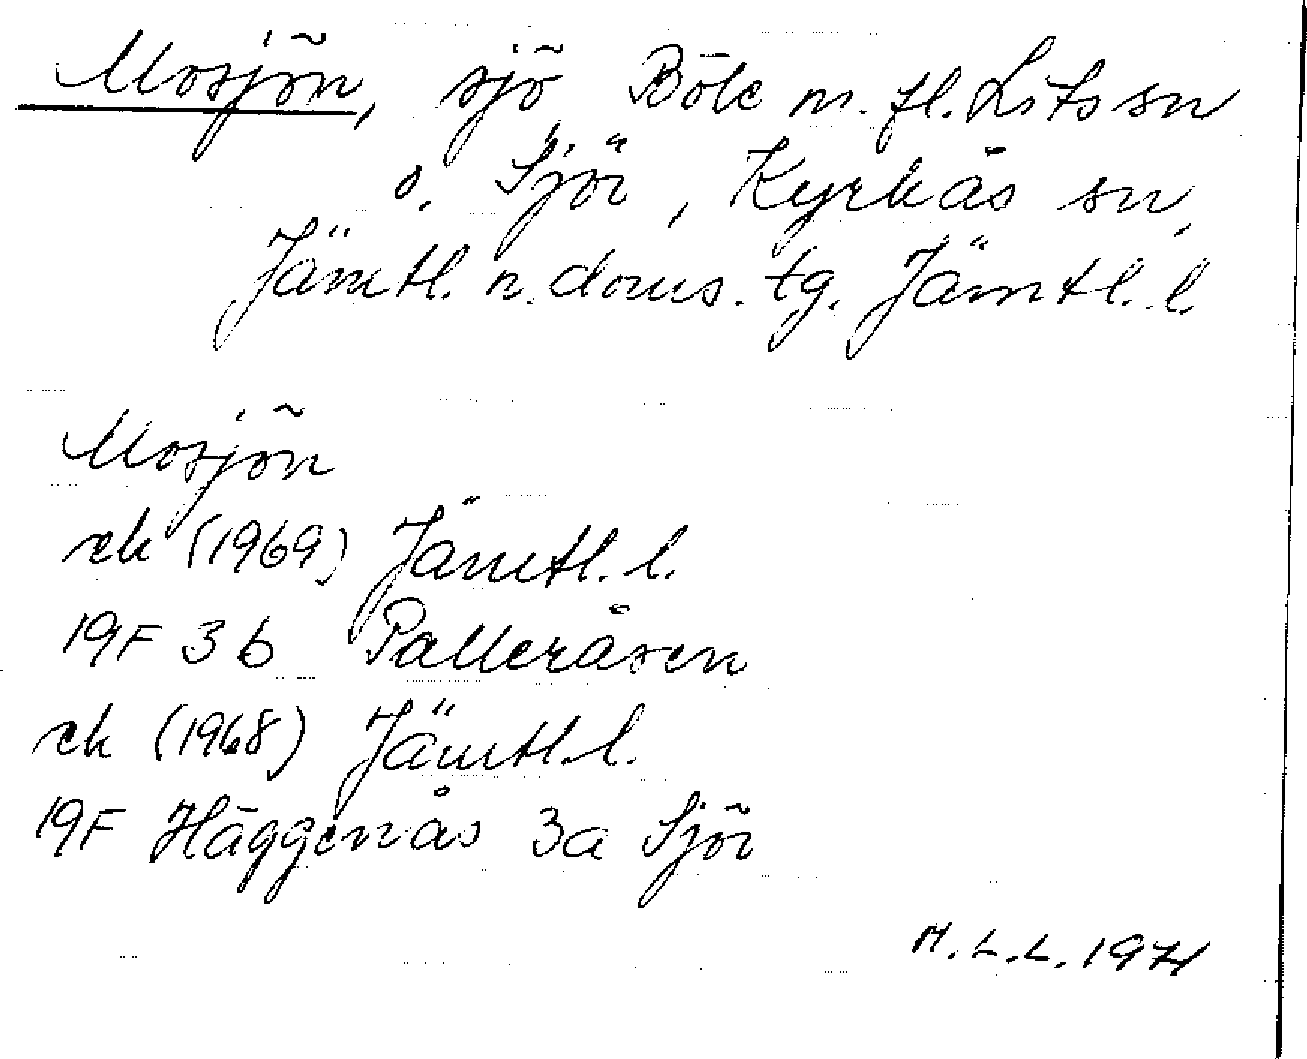 Mosjön, sjö Böle m. fl. Lits sn
o. Sjör, Kyrkås sn,
Jämtl. n. doms. tg. Jämtl. l.
Mosjön
ek (1969) Jämtl. l.
19F 3b Palleråsen
ek (1968) Jämtl. l.
19F Häggenås 3a Sjör
M.L.L. 1971